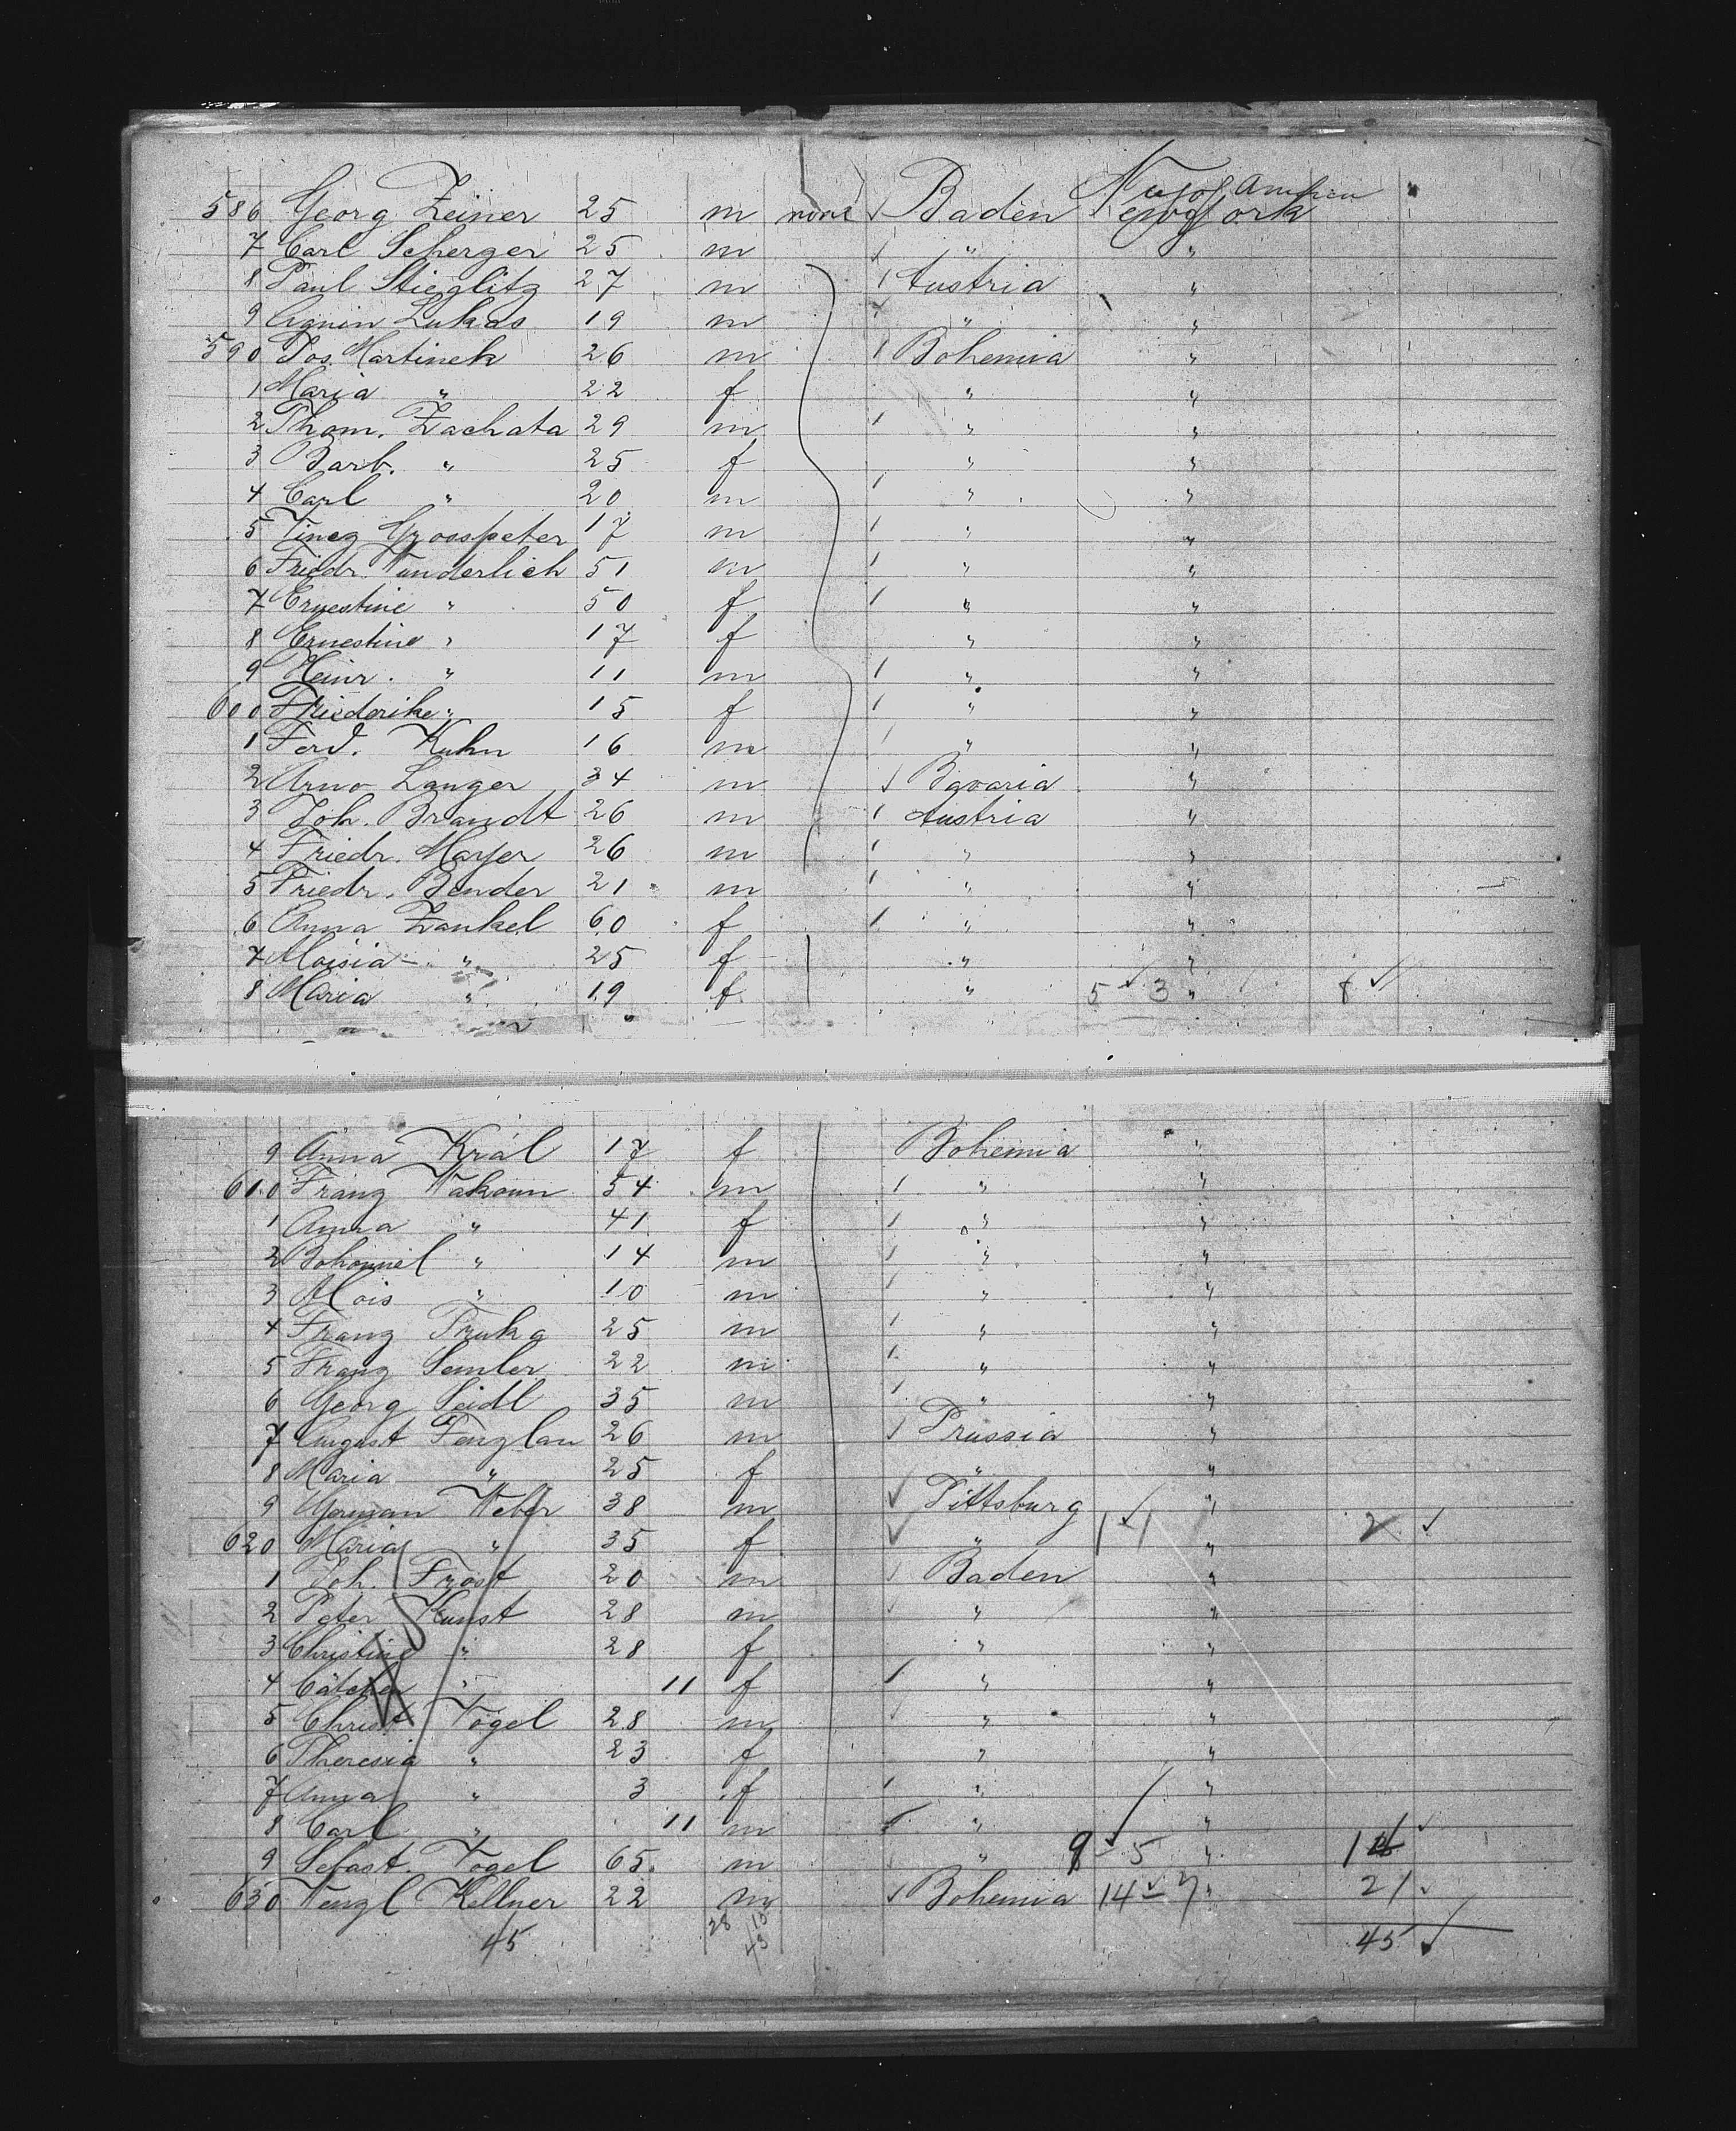 586 Georg Zeiner 25 m none ✓ Baden New York
7 Carl Scherzer 25 m / " "
8 Paul Stieglitz 27 m / Austria "
9 Lukas 19 m " "
590 Jos. Martinek 26 m / Bohemia "
1 Maria " 22 f " "
2 Thom. Zachata 29 m / " "
3 Barb. " 25 f " "
4 Carl " 20 m / " "
5 Grosspeter 17 m / " "
6 Friedr. Wunderlich 51 m / " "
7 Ernestine " 50 f / " "
8 Ernestine " 17 f " "
9 Heinr. " 11 m / " "
600 Friederike " 15 f / " "
1 Ferd. Kuhn 16 m / " "
2 Arno Langer 34 m ✓ Bavaria "
3 Joh. Brandt 26 m / Austria "
4 Friedr. Mayer 26 m / " "
5 Friedr. Bender 21 m / " "
6 Anna Zankel 60 f / " "
7 Aloisia " 25 f " "
8 Maria " 19 f " 5 ✓ 3 " 8 ✓
9 Anna Král 17 f Bohemia "
610 Franz 54 m / " "
1 Anna " 41 f / " "
2 " 14 m / " "
3 Alois " 10 m / " "
4 Franz Truka 25 m / " "
5 Franz Semler 22 m / " "
6 Georg Seidl 35 m / " "
7 August Fenzlau 26 m ✓ Prussia "
8 Maria " 25 f " "
9 Weber 38 m ✓ Pittsburg "
620 Maria " 35 f ✓ " 1 ✓ 1 " 2 ✓
1 Joh. Frost 20 m / Baden "
2 Peter Kunst 28 m ✓ " "
3 Christine " 28 f " "
4 Cätchen " 11 f / " "
5 Christ Vogel 28 m ✓ " "
6 Theresia " 23 f " "
7 Anna " 3 f / " "
8 Carl " 11 m / " "
9 Sebast. Vogel 65 m / " 9 ✓ 5 " 14 ✓
630 Wenzl Kellner 22 m ✓ Bohemia 14 ✓ 7 " 21 ✓
45 28 45 ✓